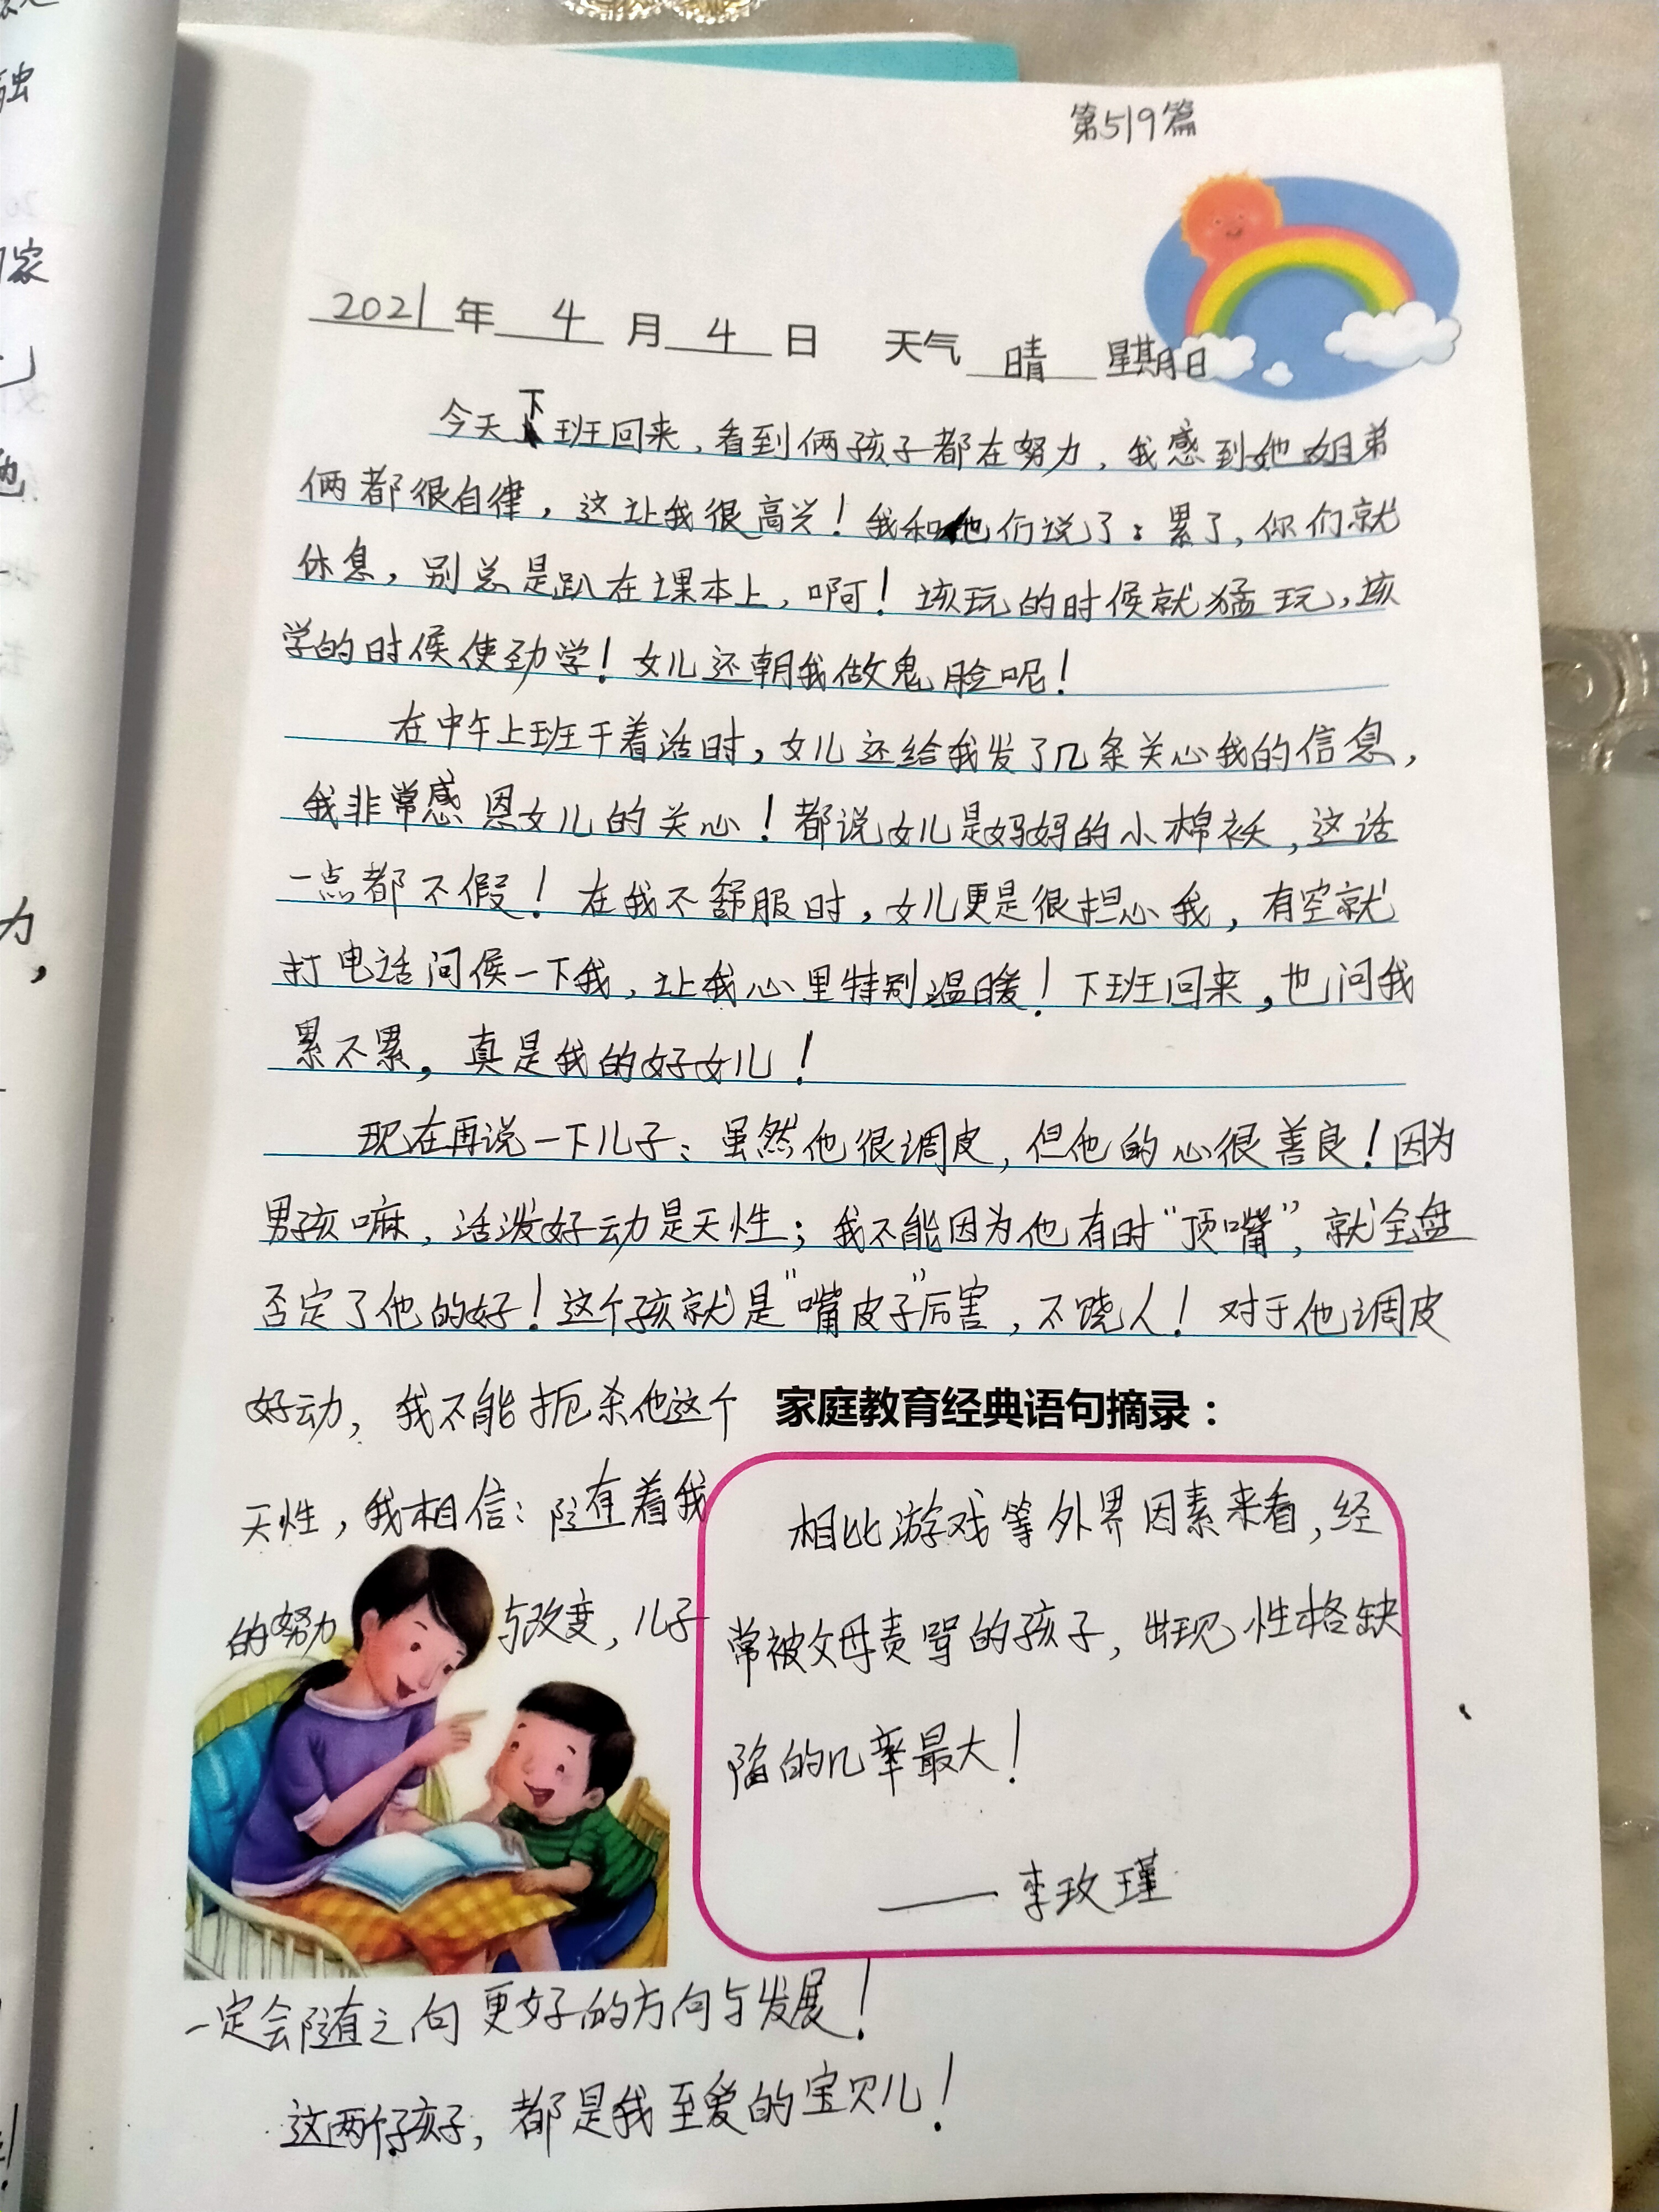 第519篇
2021年 4 月 4 日 天气 晴 星期日
今天下班回来，看到俩孩子都在努力，我感到她姐弟
俩都很自律，这让我很高兴！我和他们说了：累了，你们就
休息，别总是趴在课本上，啊！该玩的时候就猛玩，该
学的时候使劲学！女儿还朝我做鬼脸呢！
在中午上班干着活时，女儿还给我发了几条关心我的信息，
我非常感恩女儿的关心！都说女儿是妈妈的小棉袄，这话
一点都不假！在我不舒服时，女儿更是很担心我，有空就
打电话问候一下我，让我心里特别温暖！下班回来，也问我
累不累，真是我的好女儿！
现在再说一下儿子：虽然他很调皮，但他的心很善良！因为
男孩嘛，活泼好动是天性；我不能因为他有时“顶嘴”，就全盘
否定了他的好！这个孩就是“嘴皮子”厉害，不饶人！对于他调皮
好动，我不能扼杀他这个
天性，我相信：随着我
的努力与改变，儿子
家庭教育经典语句摘录：
相比游戏等外界因素来看，经
常被父母责骂的孩子，出现性格缺
陷的几率最大！
——李玫瑾
一定会随之向更好的方向与发展！
这两个孩子，都是我至爱的宝贝儿！
融
家
力，